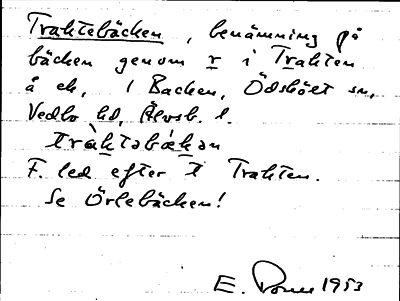 Traktebäcken, benämning på
bäcken genom r i Trakten
å ek. i Backen, Ödskölt sn,
Vedbo hd, Älvsb. l.
tràktəbækən
F. led efter t Trakten.
Se Örlebäcken!
E. 1953